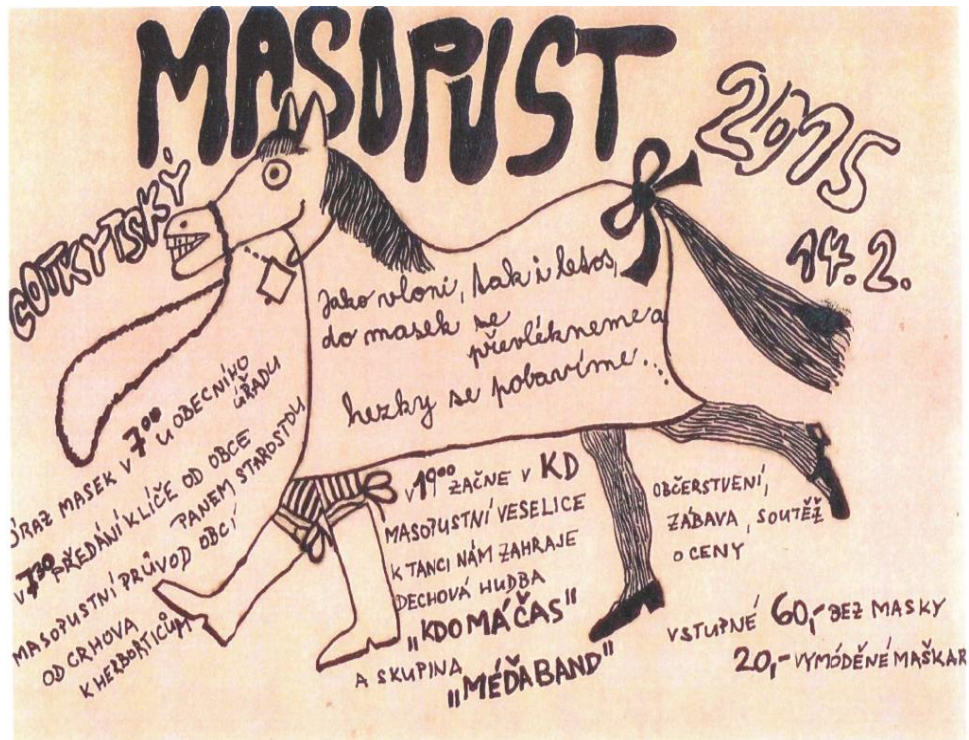 MASOPUST
2015
COTKYTSKÝ
14. 2.
Jako vloni, tak i letos,
do masek se
převlékneme a
hezky se pobavíme...
SRAZ MASEK V 7⁰⁰ U OBECNÍHO
ÚŘADU
V 7³⁰ PŘEDÁNÍ KLÍČE OD OBCE
PANEM STAROSTOU
MASOPUSTNÍ PRŮVOD OBCÍ
OD CRHOVA
K HERBORTICŮM
V 19⁰⁰ ZAČNE V KD
MASOPUSTNÍ VESELICE
K TANCI NÁM ZAHRAJE
DECHOVÁ HUDBA
„KDOMÁČAS"
A SKUPINA
„MÉĎABAND"
OBČERSTVENÍ,
ZÁBAVA, SOUTĚŽ
O CENY
VSTUPNÉ 60,- BEZ MASKY
20,- VYMÓDĚNÉ MAŠKAR